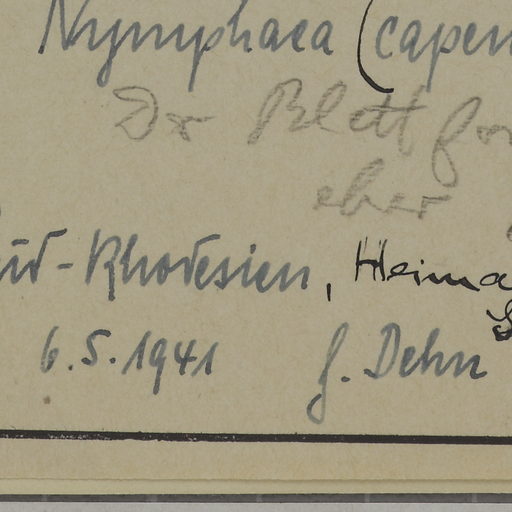 Nymphaea (capen
Dr Blatt for
eher
üd-Rhodesien, Heima
6.5.1941 G. Dehn